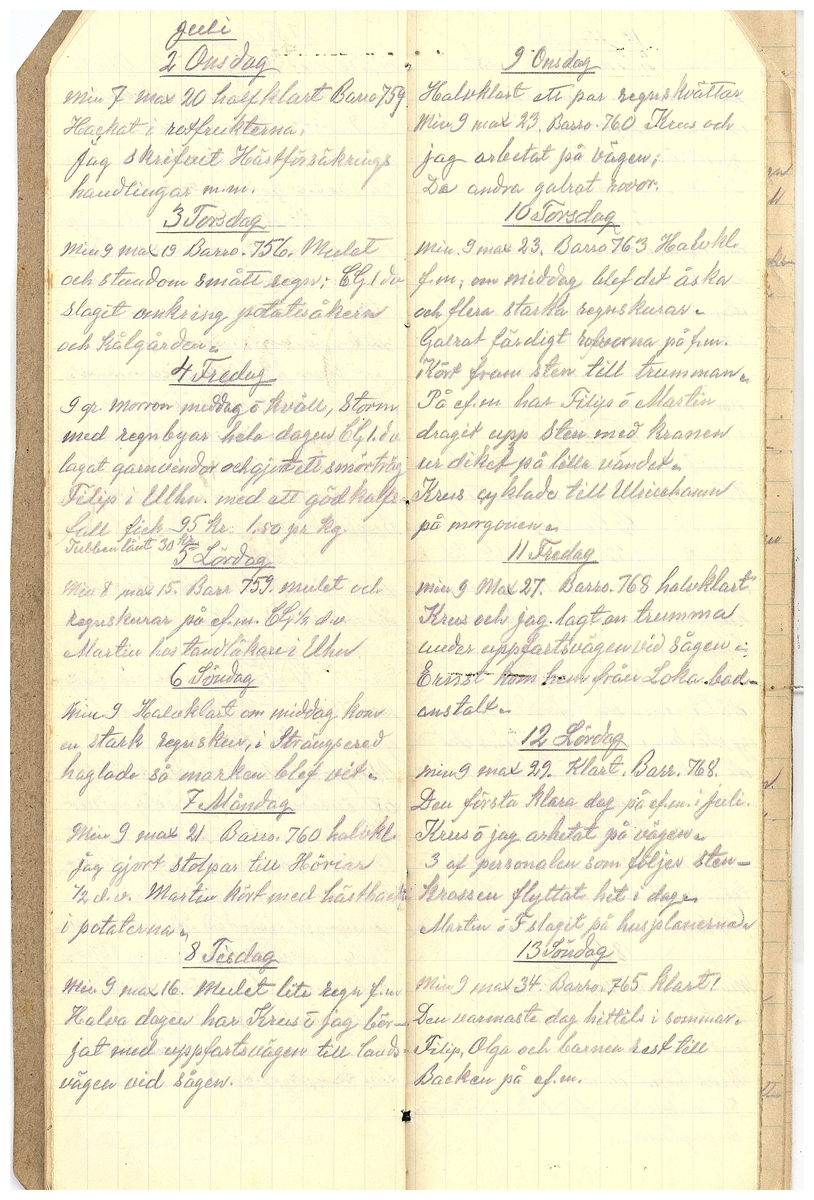 Juli
2 Onsdag
Min 7 max 20 halfklart Barro 759
Hackat i rotfrukterna,
jag skrifvit Hästförsäkrings
handlingar m.m.
3 Torsdag
Min 9 max 19 Barro. 756. Mulet
och stundom smått regn; CG 1 dv
slagit omkring potatisåkern
och Kålgården
4 Fredag
9 gr. morron middag o kväll, Storm
med regnbyar hela dagen CG 1. dv
lagat garnvendor och gjort ett smörtråg
Filip i Ulhn. med ett gödkalfs-
fall fick 95 Kr. 1.50 pr kg
lånt 30 Kr
5 Lördag
Min 8 max 15. Barr 759. mulet och
regnskurar på ef.m. CG ½ d.v
Martin hos tandläkare i Uhn
6 Söndag
Min 9 Halvklart om middag kom
en stark regnskur, i Strängsered
haglade så marken blef vit
7 Måndag
Min 9 max 21 Barro. 760 halvkl.
jag gjort stolpar till Hörian
½ d.v. Martin kört med hästhacka
i potaterna
8 Tisdag
Min 9 max 16. Mulet lite regn f.m
Halva dagen har Krus o jag bör-
jat med uppfartsvägen till lands-
vägen vid sågen.
9 Onsdag
Halvklart ett par regnskvättar
Min 9 max 23. Barro. 760 Krus och
jag arbetat på vägen;
De andra galrat rovor.
10 Torsdag
Min. 9 max 23. Barro 763 Halvkl.
f.m; om middag blef det åska
och flera starka regnskurar
Galrat färdigt rovorna på f.m.
Kört fram sten till trumman
På ef.m har Filip o Martin
dragit upp Sten med kranen
ur diket på lilla vändet
Krus cyklade till Ulricehamn
på morgonen
11 Fredag
Min 9 Max 27. Barro. 768 halvklart
Krus och jag lagt en trumma
under uppfartsvägen vid sågen
Ernst kom hem från Loka bad-
anstalt
12 Lördag
Min 9 max 29. Klart. Barr. 768.
Den första klara dag på ef.m. i Juli.
Krus o jag arbetat på vägen
3 af personalen som följer sten-
krossen flyttat hit i dag
Martin o F slaget på husplanerna
13 Söndag
Min 9 max 34. Barro. 765 klart!
Den varmaste dag hittils i sommar
Filip, Olga och barnen rest till
Backen på ef.m.